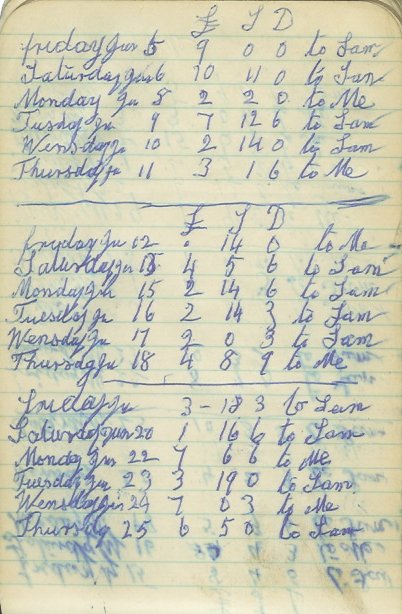 £ S D
friday Jun 5 9 0 0 to Sam
Saturday Jun 6 10 11 0 to Sam
Monday Ju 8 2 2 0 to Me
Tusday Ju 9 7 12 6 to Sam
Wensday Ju 10 2 14 0 to Sam
Thursday Ju 11 3 1 6 to Me
£ S D
friday Ju 12 0 14 0 to Me
Saturday Ju 13 4 5 6 to Sam
Monday Ju 15 2 14 6 to Sam
Tuesday Ju 16 2 14 3 to Sam
Wensday Ju 17 2 0 3 to Sam
Thursday 18 4 8 9 to Me
friday Ju 3 - 18 3 to Sam
Saturday Jun 20 1 16 6 to Sam
Monday Jun 22 7 6 6 to Me
Tuesday Jun 23 3 19 0 to Sam
Wensday Jun 24 7 0 3 to Me
Thursday 25 6 5 0 to Sam